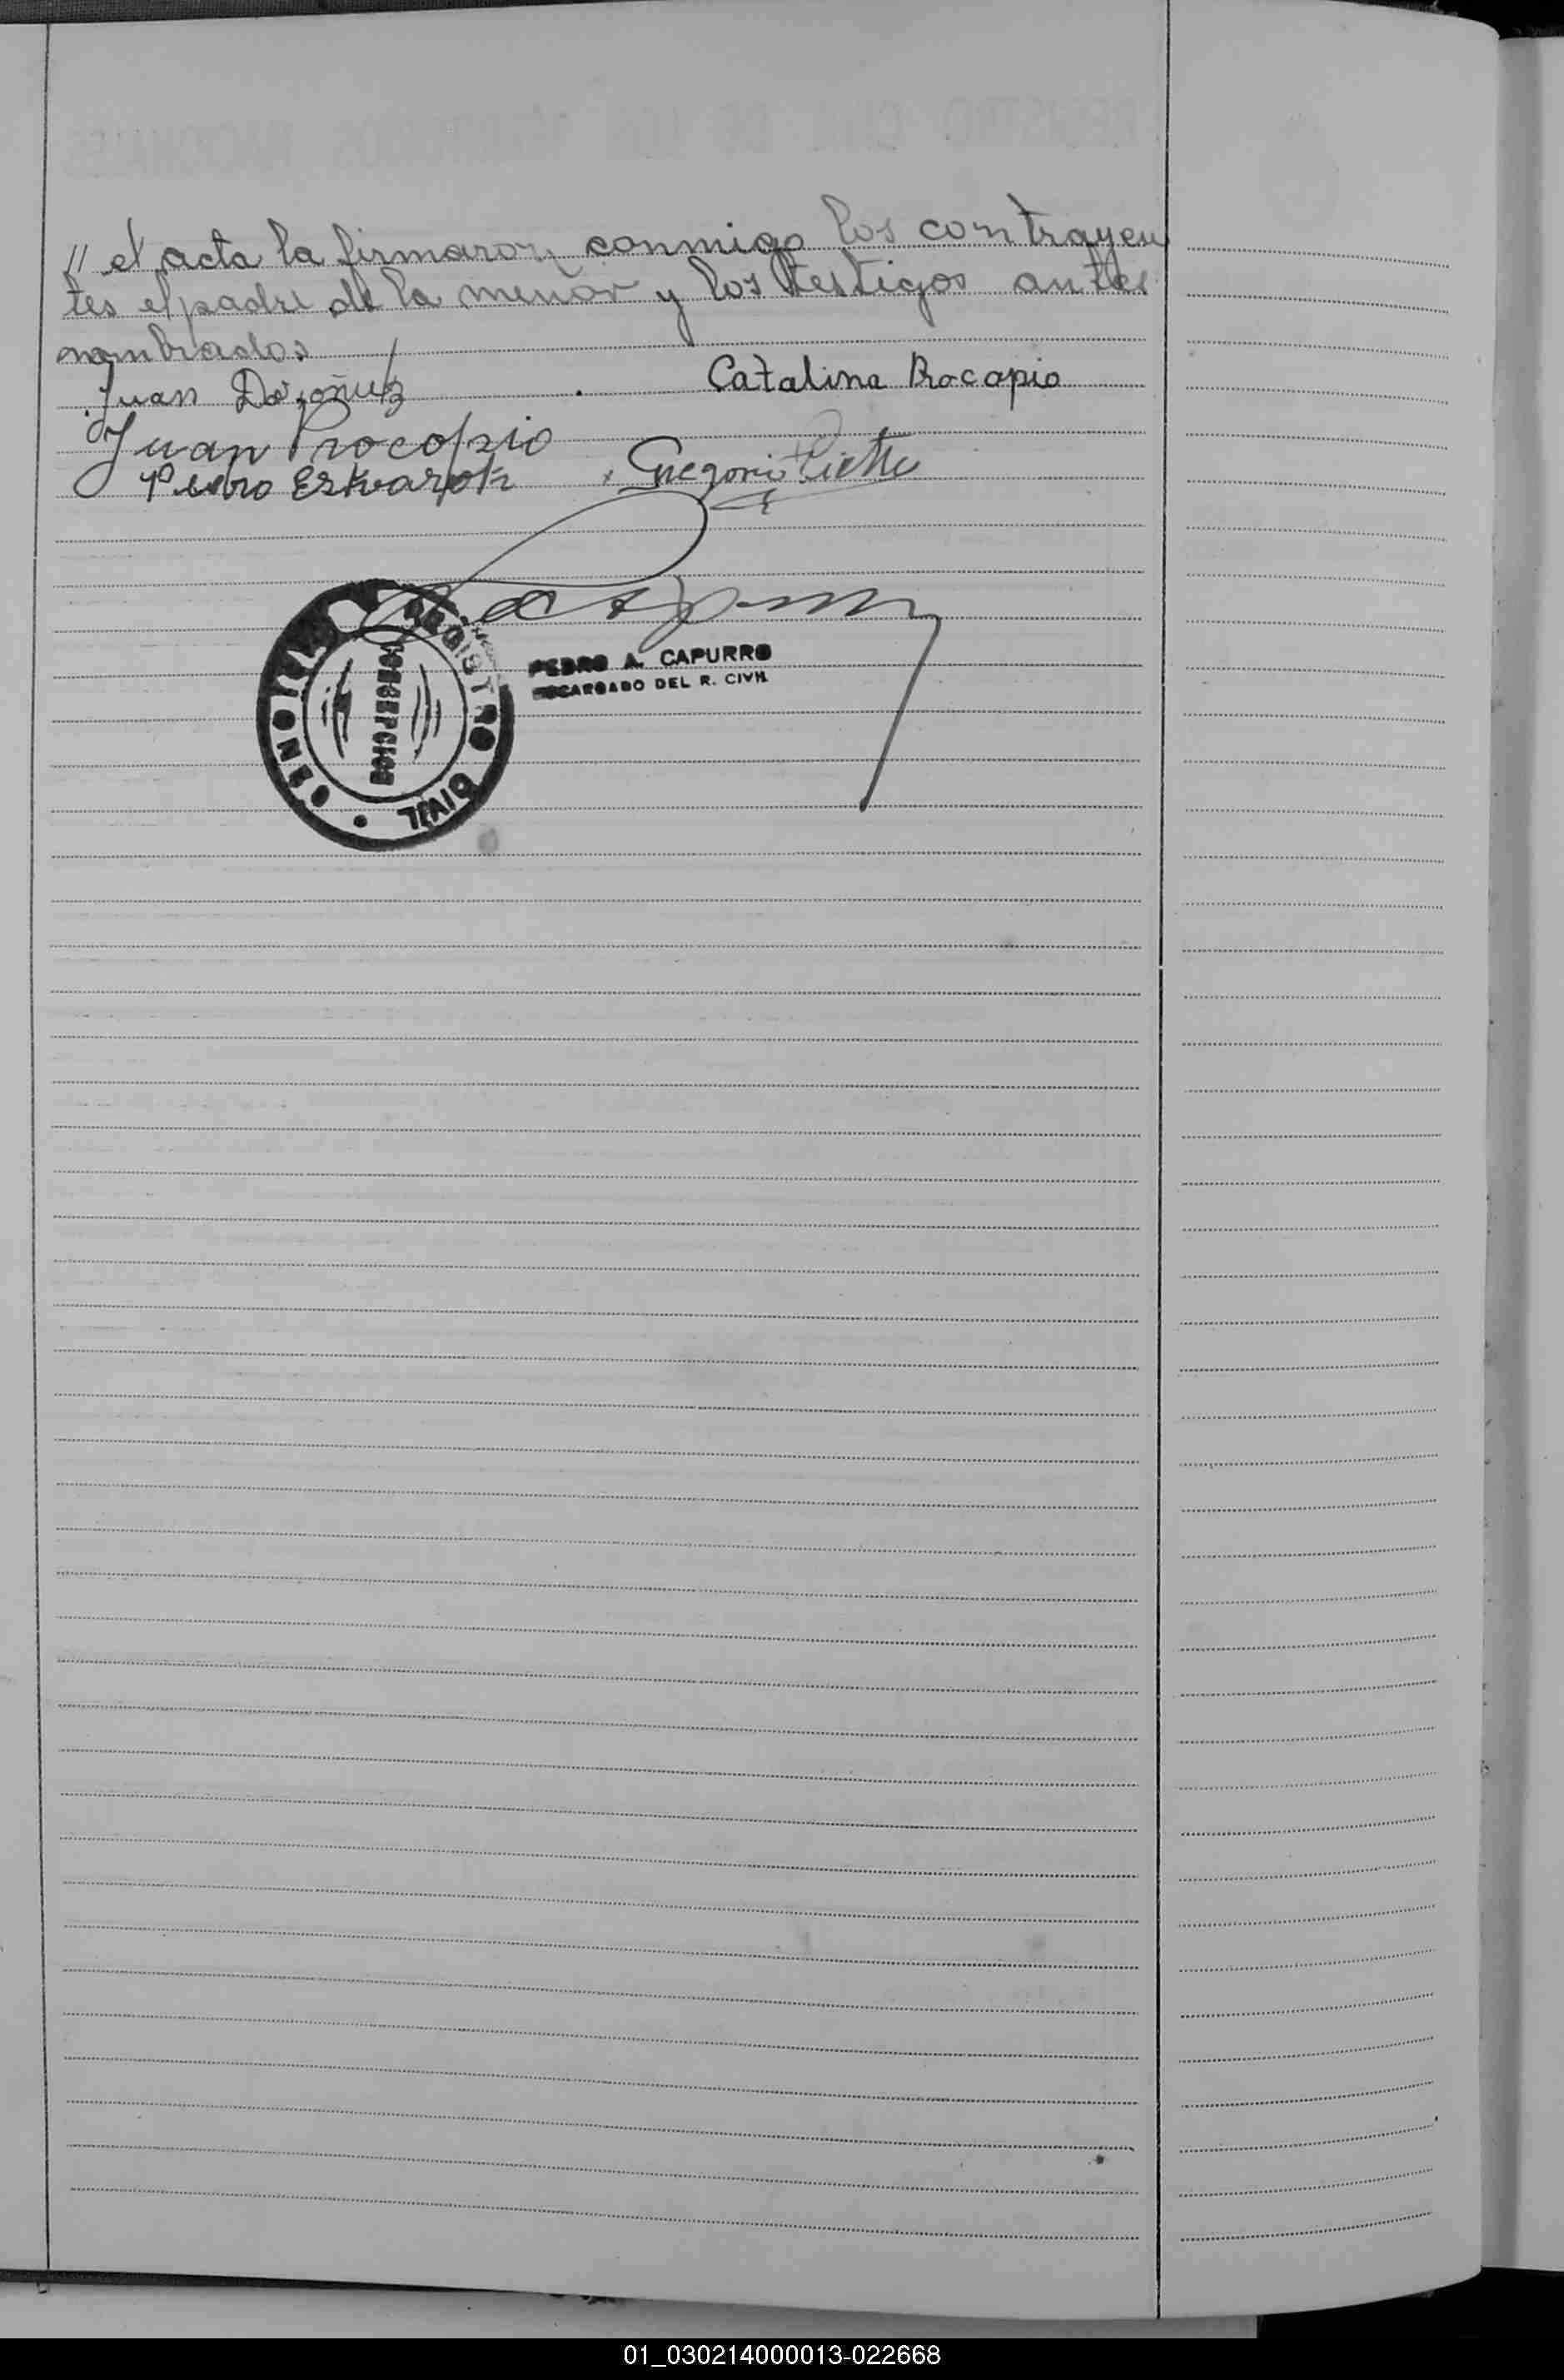 // el acta la firmaron conmigo los contrayen
tes el padre de la menor y los testigos antes
nombrados
Juan Catalina Procopio
Juan Procopio
Pedro Gregorio
PEDRO A. CAPURRO
ENCARGADO DEL R. CIVIL
REGISTRO CIVIL
CONCEPCION
01_030214000013-022668